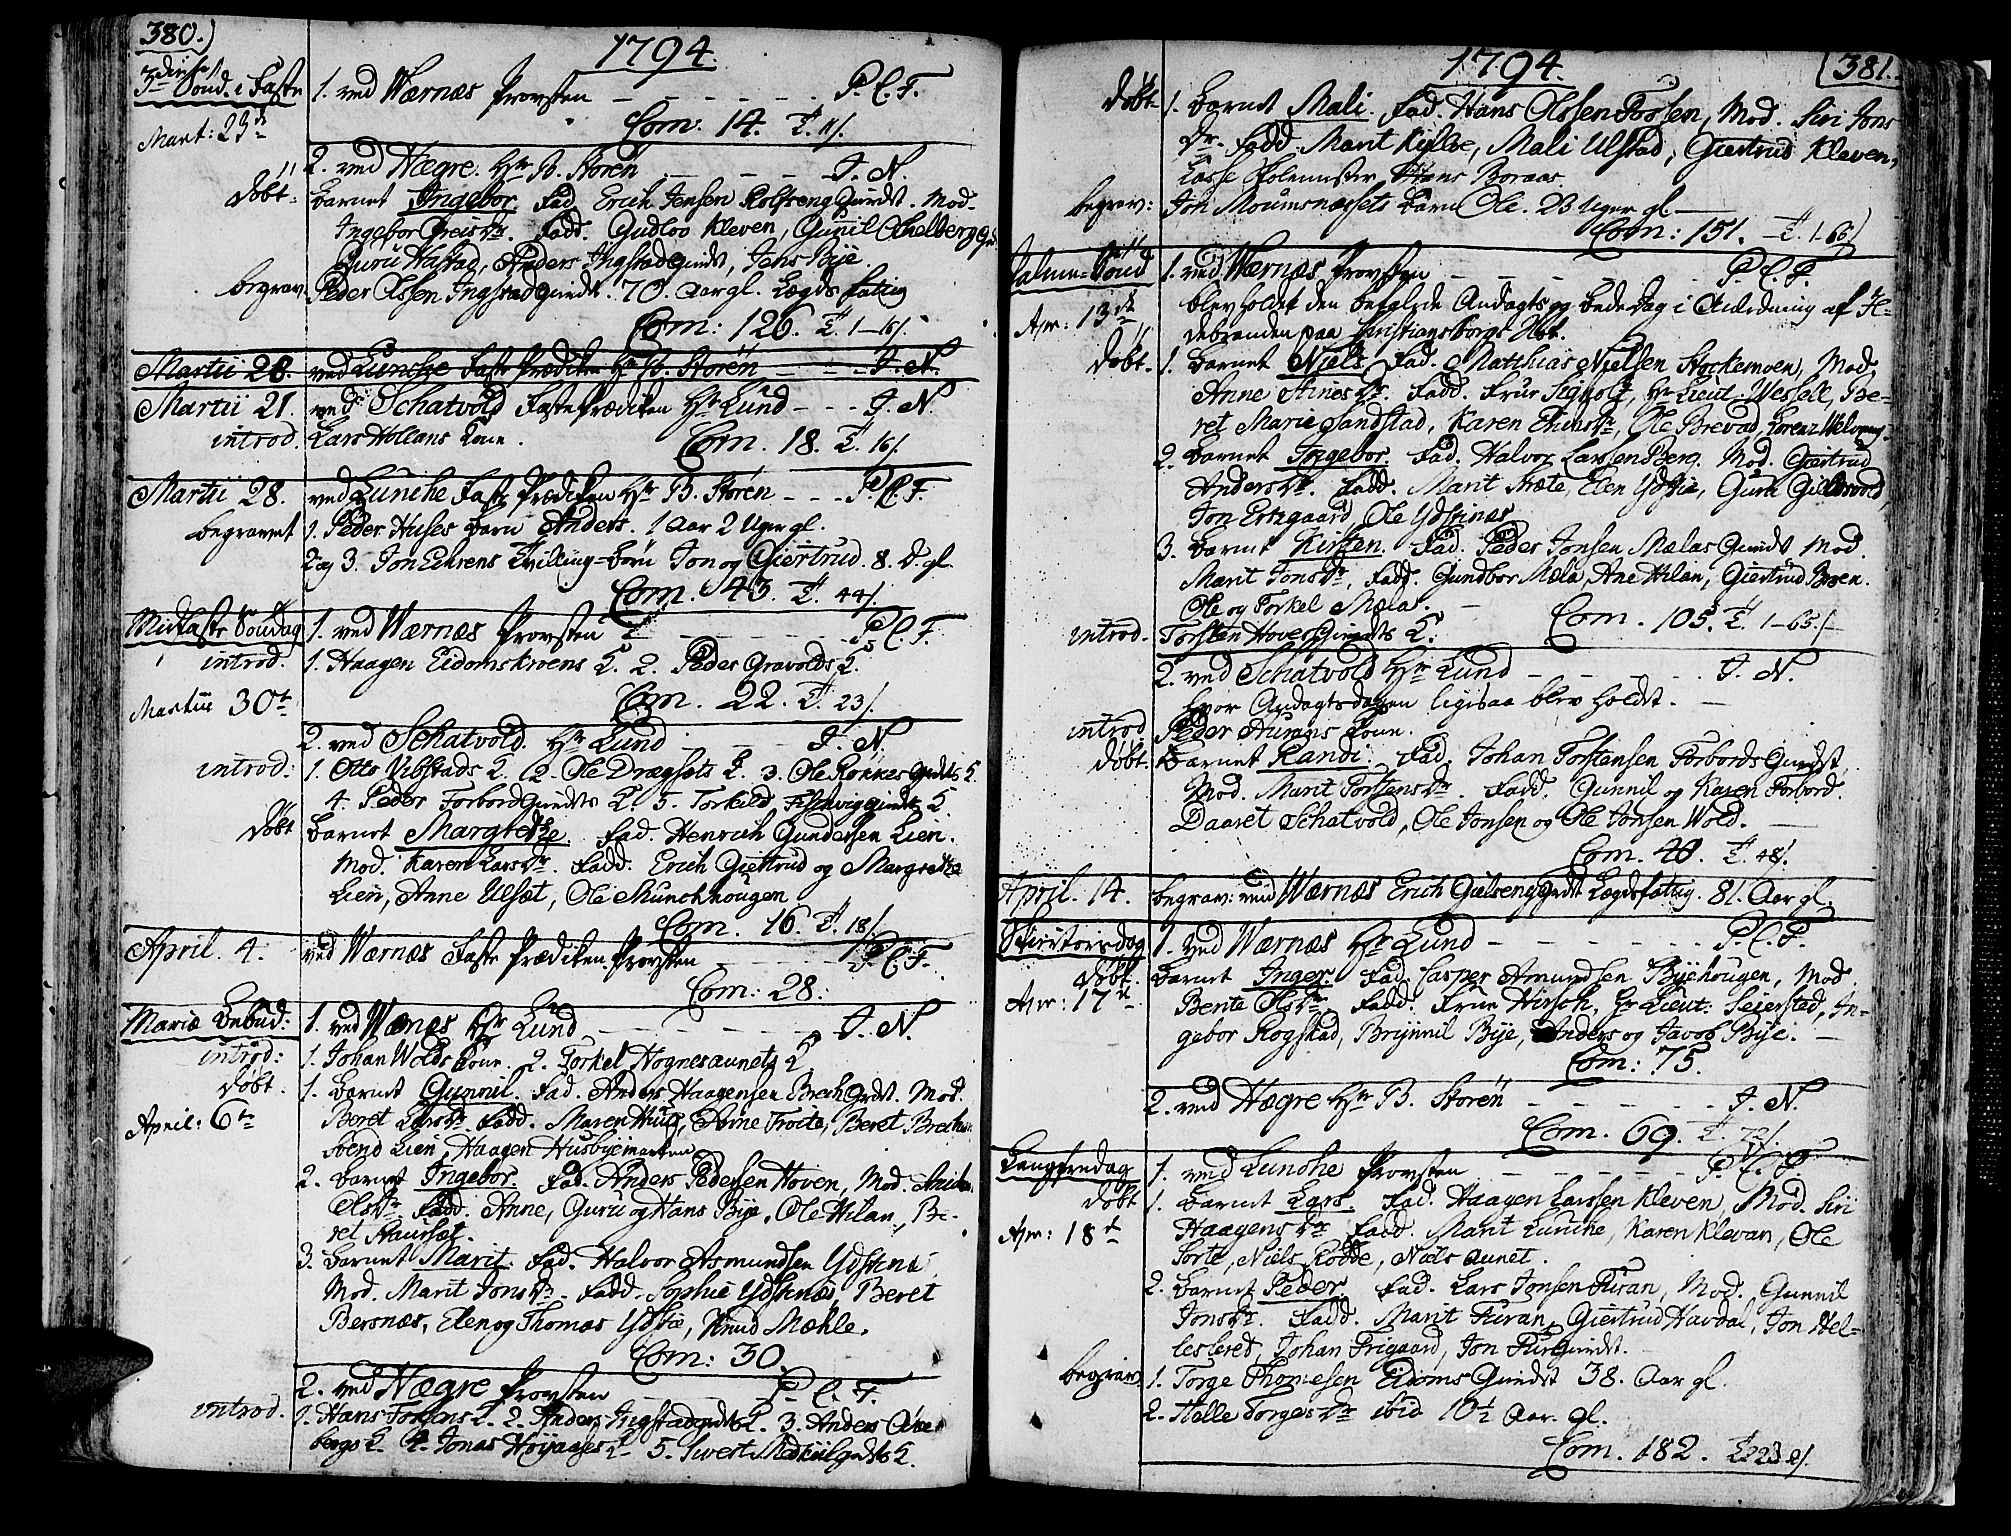 380.)
1794.
3die Sönd. i Faste
1. ved Wærnæs Provsten — — — P. C. F.
Mart: 23d
Com. 14.
2. ved Hægre. Hr B. Storén — — — J. N.
döbt.
barnet Ingebor. Fad. Erich Jensen Rolfseng Gundt. Mod.
Ingebor Greisdr. Fadd. Gudlov Kleven, Gunil
Guru Hastad, Anders Ingstadgundt, Jens Bye.
begrav.
Peder Olssen Ingstadgundt. 70. Aar gl. Lægds fattig
Com: 126.
Martii 28. ved Lunche Faste Prædiken Hr B. Storén — — J. N.
Martii 21. ved Schatvold Faste Prædiken Hr Lund — — J. N.
introd. Lars Hollans Kone.
Com. 18. 16/.
Martii 28. ved Lunche Faste Prædiken Hr B. Storén — — P. C. F.
begravet 1. Peder Huses barn Anders. 1 Aar 2 Uger gl.
2 og 3. Jon Tvilling-börn Jon og Giertrud. 8. D. gl.
Com. 43. 44/.
Midfaste Söndag 1. ved Wærnæs Provsten — — — P. C. F.
introd. 1. Haagen Eidomskroens K. 2. Peder Gravolds K.
Martii 30te
Com. 22. 23/.
2. ved Schatvold. Hr Lund — — — J. N.
introd: 1. Otto Vibstads K. 2. Ole Dragsets K. 3. Ole Rönnes K.
4. Peder Forbordgundts K. 5. Torkild K.
döbt
barnet Margrethe Fad. Henrich Gundersen Lien.
Mod. Karen Larsdr. Fadd. Erich Giertrud og Margrethe
Lien, Anne Ulsæt, Ole Munchhougen
Com. 16. 18/.
April. 4. ved Wærnæs Faste Prædiken Provsten — — P. C. F.
Com: 28.
Mariæ Bebud: 1. ved Wærnæs Hr Lund — — — J. N.
introd: 1. Johan Wolds Kone. 2. Torkel Hognesaunets K.
döbt. 1. barnet Gunnil. Fad. Anders Haagensen Brech Grdt. Mod.
April: 6te
Beret Larsdr. Fadd. Maren Hug, Anne Froite, Beret
Svend Lien, Haagen Husbyemarken
2. barnet Ingebor. Fad. Anders Pedersen Hoven, Mod.
Olsdr. Fadd. Anne, Guru og Hans Bye, Ole Hilan, Be-
ret
3. barnet Marit. Fad. Halvor Asmundsen Ydstines
Mod. Marit Jonsdr. Fadd. Sophie Ydstines, Beret
Bersnæs, Elen og Thomas Ydstie, Knud Mæhle.
Com: 30.
2. ved Hægre Provsten — — — P. C. F.
introd. 1. Hans K. 2. Anders Ingstadgundts K. 3. Anders
bergs K. 4. Jonas K. 5. Sivert K.
1794.
381.
döbt. 1. barnet Mali. Fad. Hans Olssen Fossen, Mod. Siri Jons
Dr. Fadd. Marit Kylloe, Mali Ulstad, Giertrud Kleven,
Lasse Skolemester, Hans Boraas.
begrav: Jon Moumsnæssets barn Ole. 23 Uger gl.
Com: 151.
Palme-Sönd 1. ved Wærnæs Provsten — — — P. C. F.
Apr: 13de
blev holdet den befalede Andagts og bededag i Anledning af Il-
debranden paa Christiansborgs Slot.
döbt. 1. barnet Niels. Fad. Matthias Nielsen Stockemoen, Mod.
Anne Stinesdr. Fadd. Frue Sigholt, Hr Lieut. Wessell, Be-
ret Marie Sandstad, Karen Ole Brevad,
2. barnet Ingebor. Fad. Halvor Larssen Berg. Mod. Giertrud
Andersdr. Fadd. Marit Elen Ydstie, Guru
Jon Ertzgaard, Ole Ydstines.
3. barnet Kirsten. Fad. Peder Jonsen Mælas Gundt Mod.
Marit Jonsdr. Fadd. Gundbor Mæla, Ane Hilan, Giertrud Broen.
Ole og Torkel Mælas.
Com. 105.
introd. Torsten Hovens Gundts K.
2. ved Schatvold Hr Lund — — — J. N.
hvor Andagtsdagen ligesaa blev holdt.
introd Peder Kone.
döbt. barnet Randi. Fad. Johan Torstensen Forbords Gundt
Mod. Marit Torstensdr. Fadd. Gunnil og Karen Forbord.
Daaret Schatvold, Ole Jonsen og Ole Jonsen Wold.
Com. 40. 48/.
April. 14. begrav: ved Wærnæs Erich Gielsenggrdt Lægdsfattig. 81. Aar gl.
Skiertorsdag 1. ved Wærnæs Hr Lund — — — P. C. F.
döbt. barnet Inger. Fad. Casper Amundsen Byehougen, Mod.
Apr: 17de
Bente Olsdr. Fadd. Frue Hirsch, Hr Lieut: Seierstad, In-
gebor Rogstad, Brynnil Bye, Anders og Jacob Bye.
Com: 75.
2. ved Hægre Hr B. Storén — — — J. N.
Com. 69. 72/.
Langfredag 1. ved Lunche Provsten — — — P. C. F.
döbt 1. barnet Lars. Fad. Haagen Larssen Kleven, Mod. Siri
Apr: 18de
Haagensdr. Fadd. Marit Lunche, Karen Klevan, Ole
Forte, Niels Rödde, Niels Aunet.
2. barnet Peder. Fad. Lars Jonsen Furan, Mod. Gunnil
Jonsdr. Fadd. Marit Furan, Giertrud Havdal, Jon Hel-
lesleret, Johan Frigaard, Jon
begrav. 1. Torge Thomesen Eidoms Gundst 38. Aar gl.
2. Helle Torgersdr ibid 10½ Aar. gl.
Com. 182.